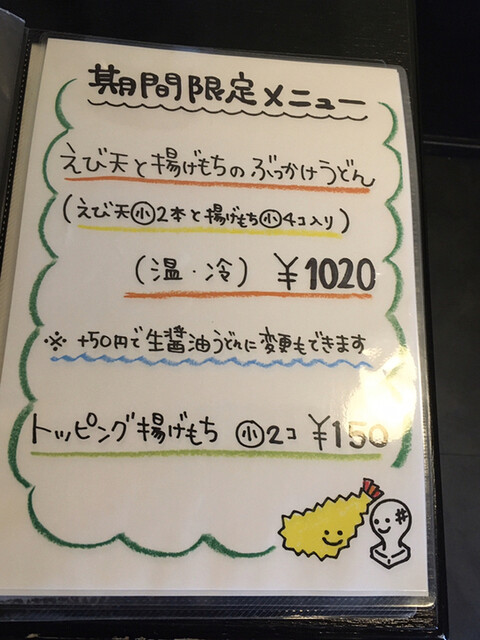 期間限定メニュー
えび天と揚げもちのぶっかけうどん
(えび天㊙小2本と揚げもち小4コ入り)
(温・冷) ¥1020
※ +50円で生醤油うどんに変更もできます
トッピング揚げもち 小2コ ¥150